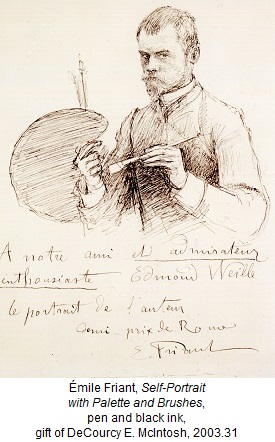 A notre ami et admirateur
enthousiaste Edmond
le portrait de l'auteur
demi-prix de Rome
E. Friant
Émile Friant, Self-Portrait
with Palette and Brushes,
pen and black ink,
gift of DeCourcy E. McIntosh, 2003.31